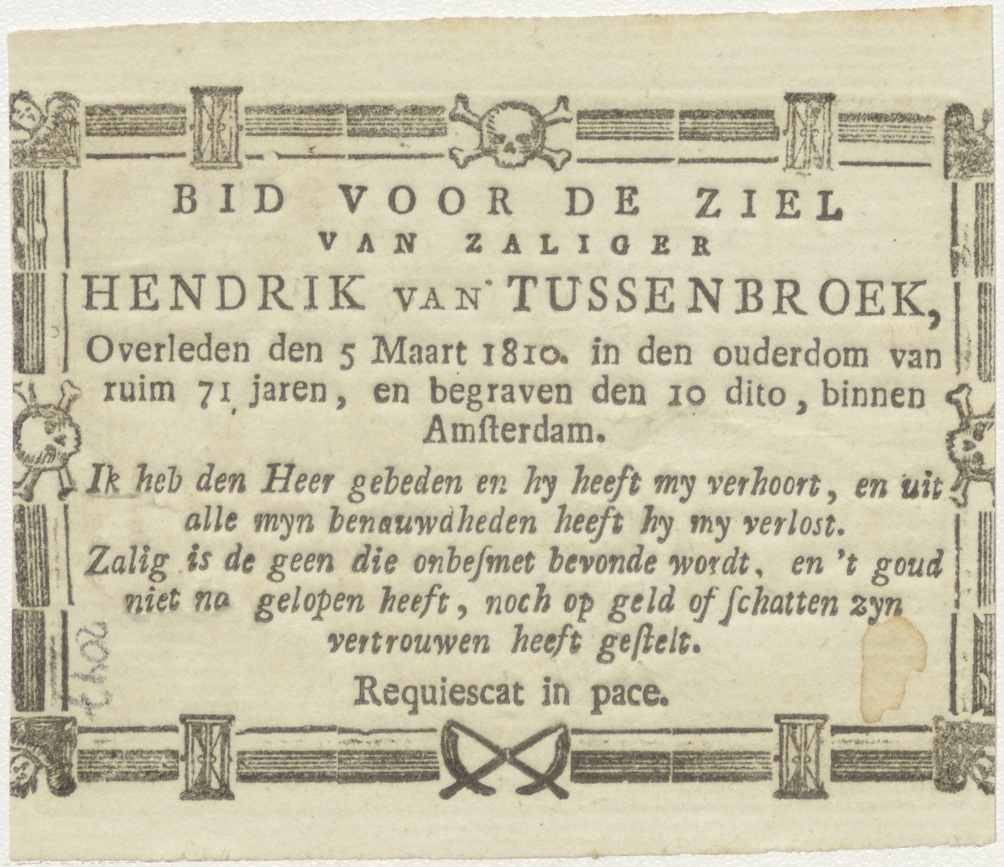 BID VOOR DE ZIEL
VAN ZALIGER
HENDRIK VAN TUSSENBROEK,
Overleden den 5 Maart 1810. in den ouderdom van
ruim 71 jaren, en begraven den 10 dito, binnen
Amſterdam.
Ik heb den Heer gebeden en hy heeft my verhoort, en uit
alle myn benauwdheden heeft hy my verlost.
Zalig is de geen die onbeſmet bevonde wordt, en 't goud
niet na gelopen heeft, noch op geld of ſchatten zyn
vertrouwen heeft geſtelt.
Requiescat in pace.